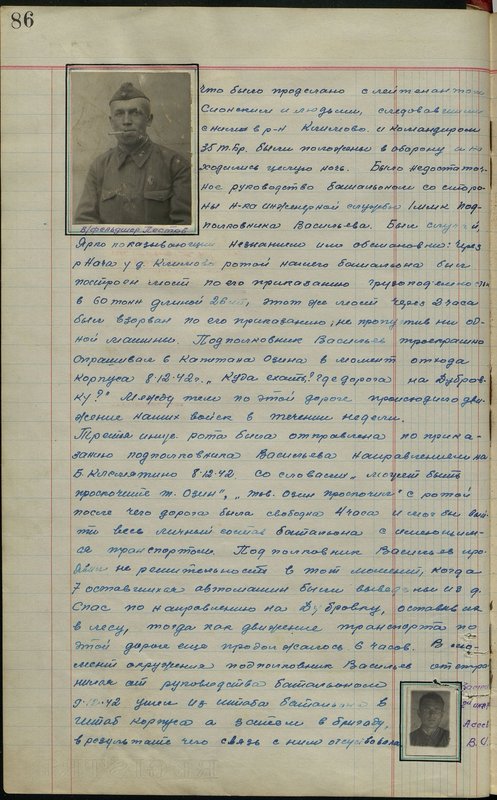 86
что было проделано с лейтенантом
Сионским и людьми, следовавшими
с ними в р-н Климово. и командиром
35 т.бр. были положены в оборону и на-
ходились целую ночь. Было недостаточ-
ное руководство батальоном со сторо-
ны н-ка инженерной службы 1 ммк под-
полковника Васильева. Был случай,
в/фельдшер Постов
Ярко показывающий незнание им обстановки: через
р Нача у д. Климово ротой нашего батальона был
построен мост по его приказанию грузоподъемностью
в 60 тонн длиной 28 мт, этот же мост через 2 часа
был взорван по его приказанию, не пропустив ни од-
ной машины. Подполковник Васильев троекратно
спрашивал в Капитана Озина в момент отхода
корпуса 8.12.42г. „Куда ехать? Где дорога на Дубров-
ку?" Между тем по этой дороге происходило дви-
жение наших войск в течении недели.
Третья инж. рота была отправлена по прика-
занию подполковника Васильева направлением на
Б. Клемятино 8.12.42 со словами „может быть
проскочите т. Озин", „тов. Озин проскочил" с ротой
после чего дорога была свободна 4 часа и мог бы вый-
ти весь личный состав батальона с имеющим-
ся транспортом. Подполковник Васильев про-
явил не решительность в тот момент, когда
7 оставшихся автомашин были выведены из д.
Спас по направлению на Дубровку, оставив их
в лесу, тогда как движение транспорта по
этой дороге еще продолжалось 6 часов. В мо-
мент окружения подполковник Васильев отстра-
нился от руководства батальоном
12.42 ушел из штаба батальона в
штаб корпуса а затем в бригаду,
в результате чего связь с ним отсутствовала
В. И.